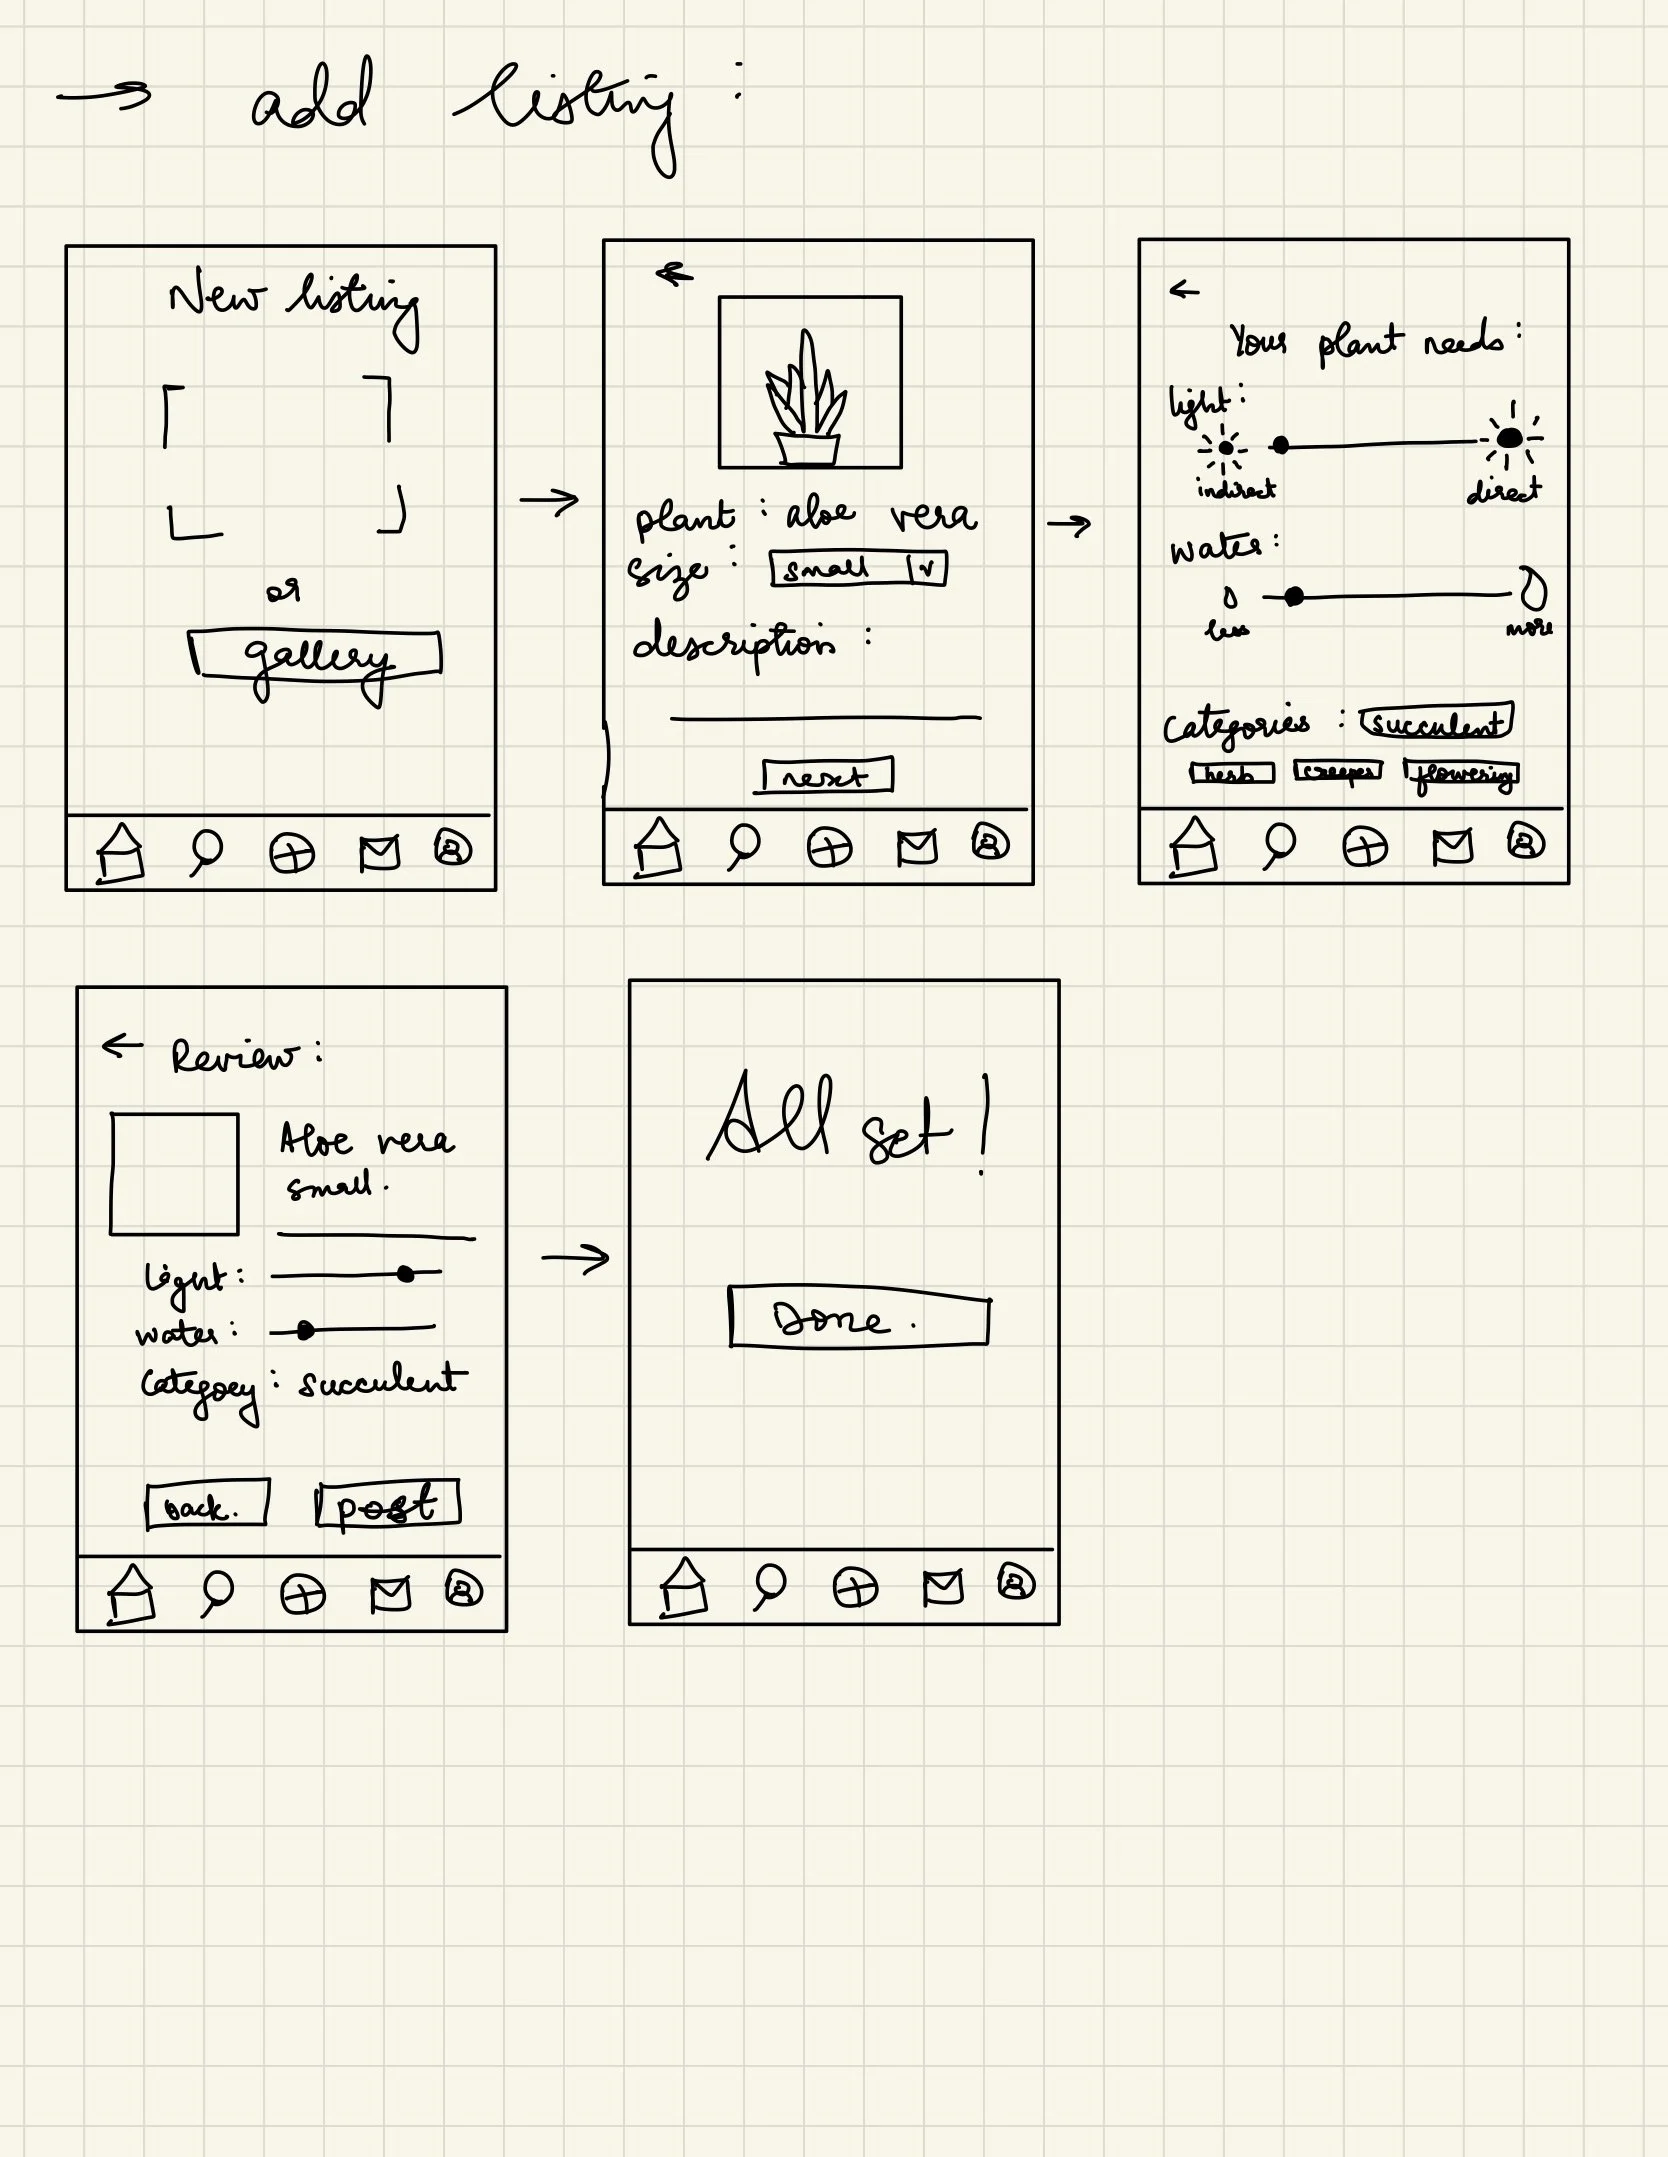 → add listing :
New listing
or
gallery
←
plant : aloe vera
size : small v
description :
next
←
Your plant needs :
light :
indirect direct
water :
less more
Categories : succulent
herb creeper flowering
← Review :
Aloe vera
small.
light :
water :
Category : succulent
back. post
All set !
Done.